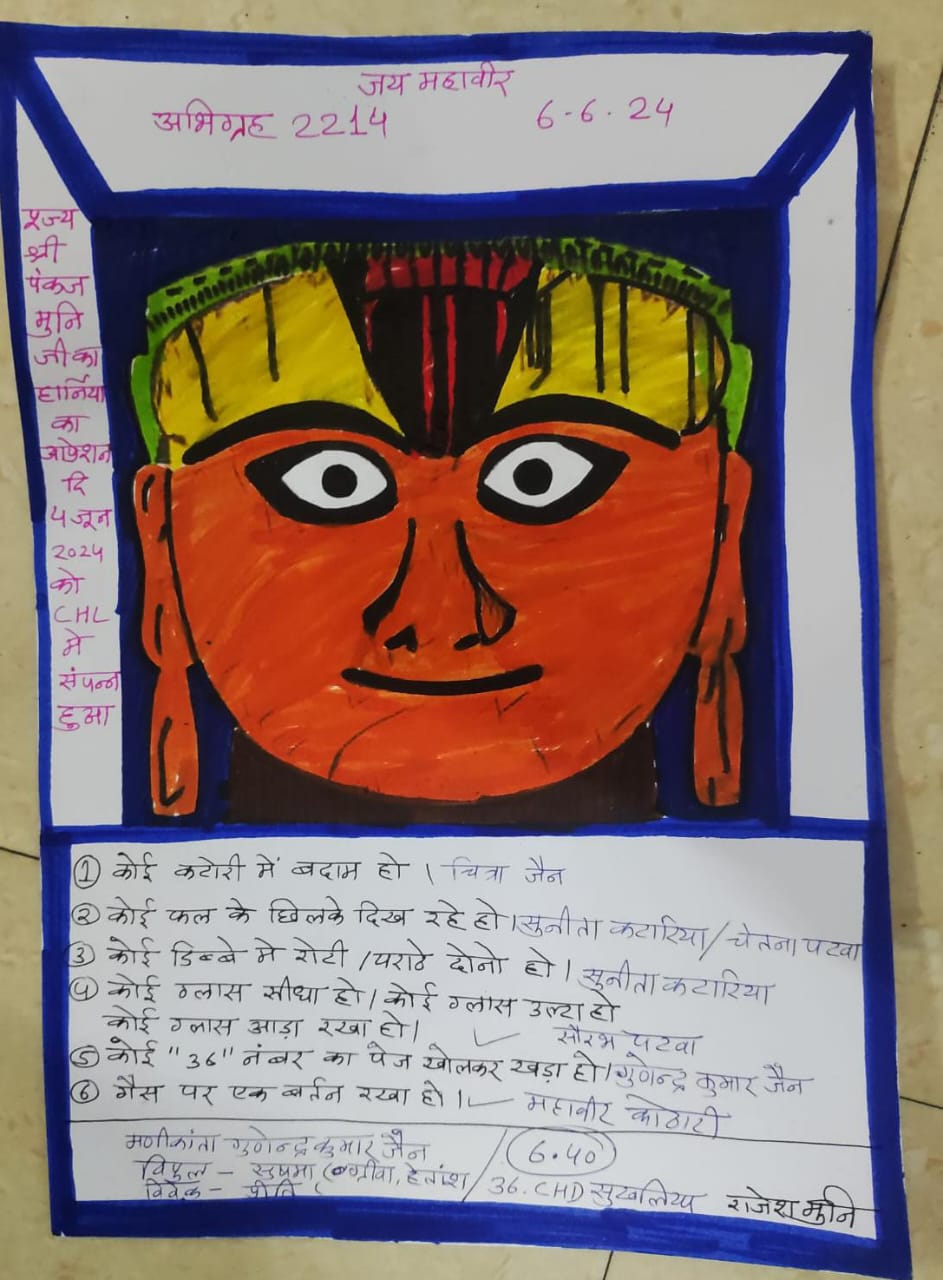 जय महावीर
अभिग्रह 2214 6-6.24
पूज्य
श्री
पंकज
मुनि
जी का
हार्निया
का
आपेशन
दि
4 जून
2024
को
CHL
मे
संपन्न
हुआ
① कोई कटोरी में बदाम हो । चित्रा जैन
② कोई फल के छिलके दिख रहे हो । सुनीता कटारिया / चेतना पटवा
③ कोई डिब्बे मे रोटी / पराठे दोनो हो । सुनीता कटारिया
④ कोई ग्लास सीधा हो । कोई ग्लास उल्टा हो
कोई ग्लास आड़ा रखा हो । ✓ सौरभ पटवा
⑤ कोई "36" नंबर का पेज खोलकर खड़ा हो । गुणेन्द्र कुमार जैन
⑥ गैस पर एक बर्तन रखा हो । ✓ महावीर कोठारी
मणीकांता गुणेन्द्र कुमार जैन 6.40
विपुल - सुषमा ( ग्रीवा, हेतांश / 36. CHD सुखलिया राजेश मुनि
विवेक - प्रीति (